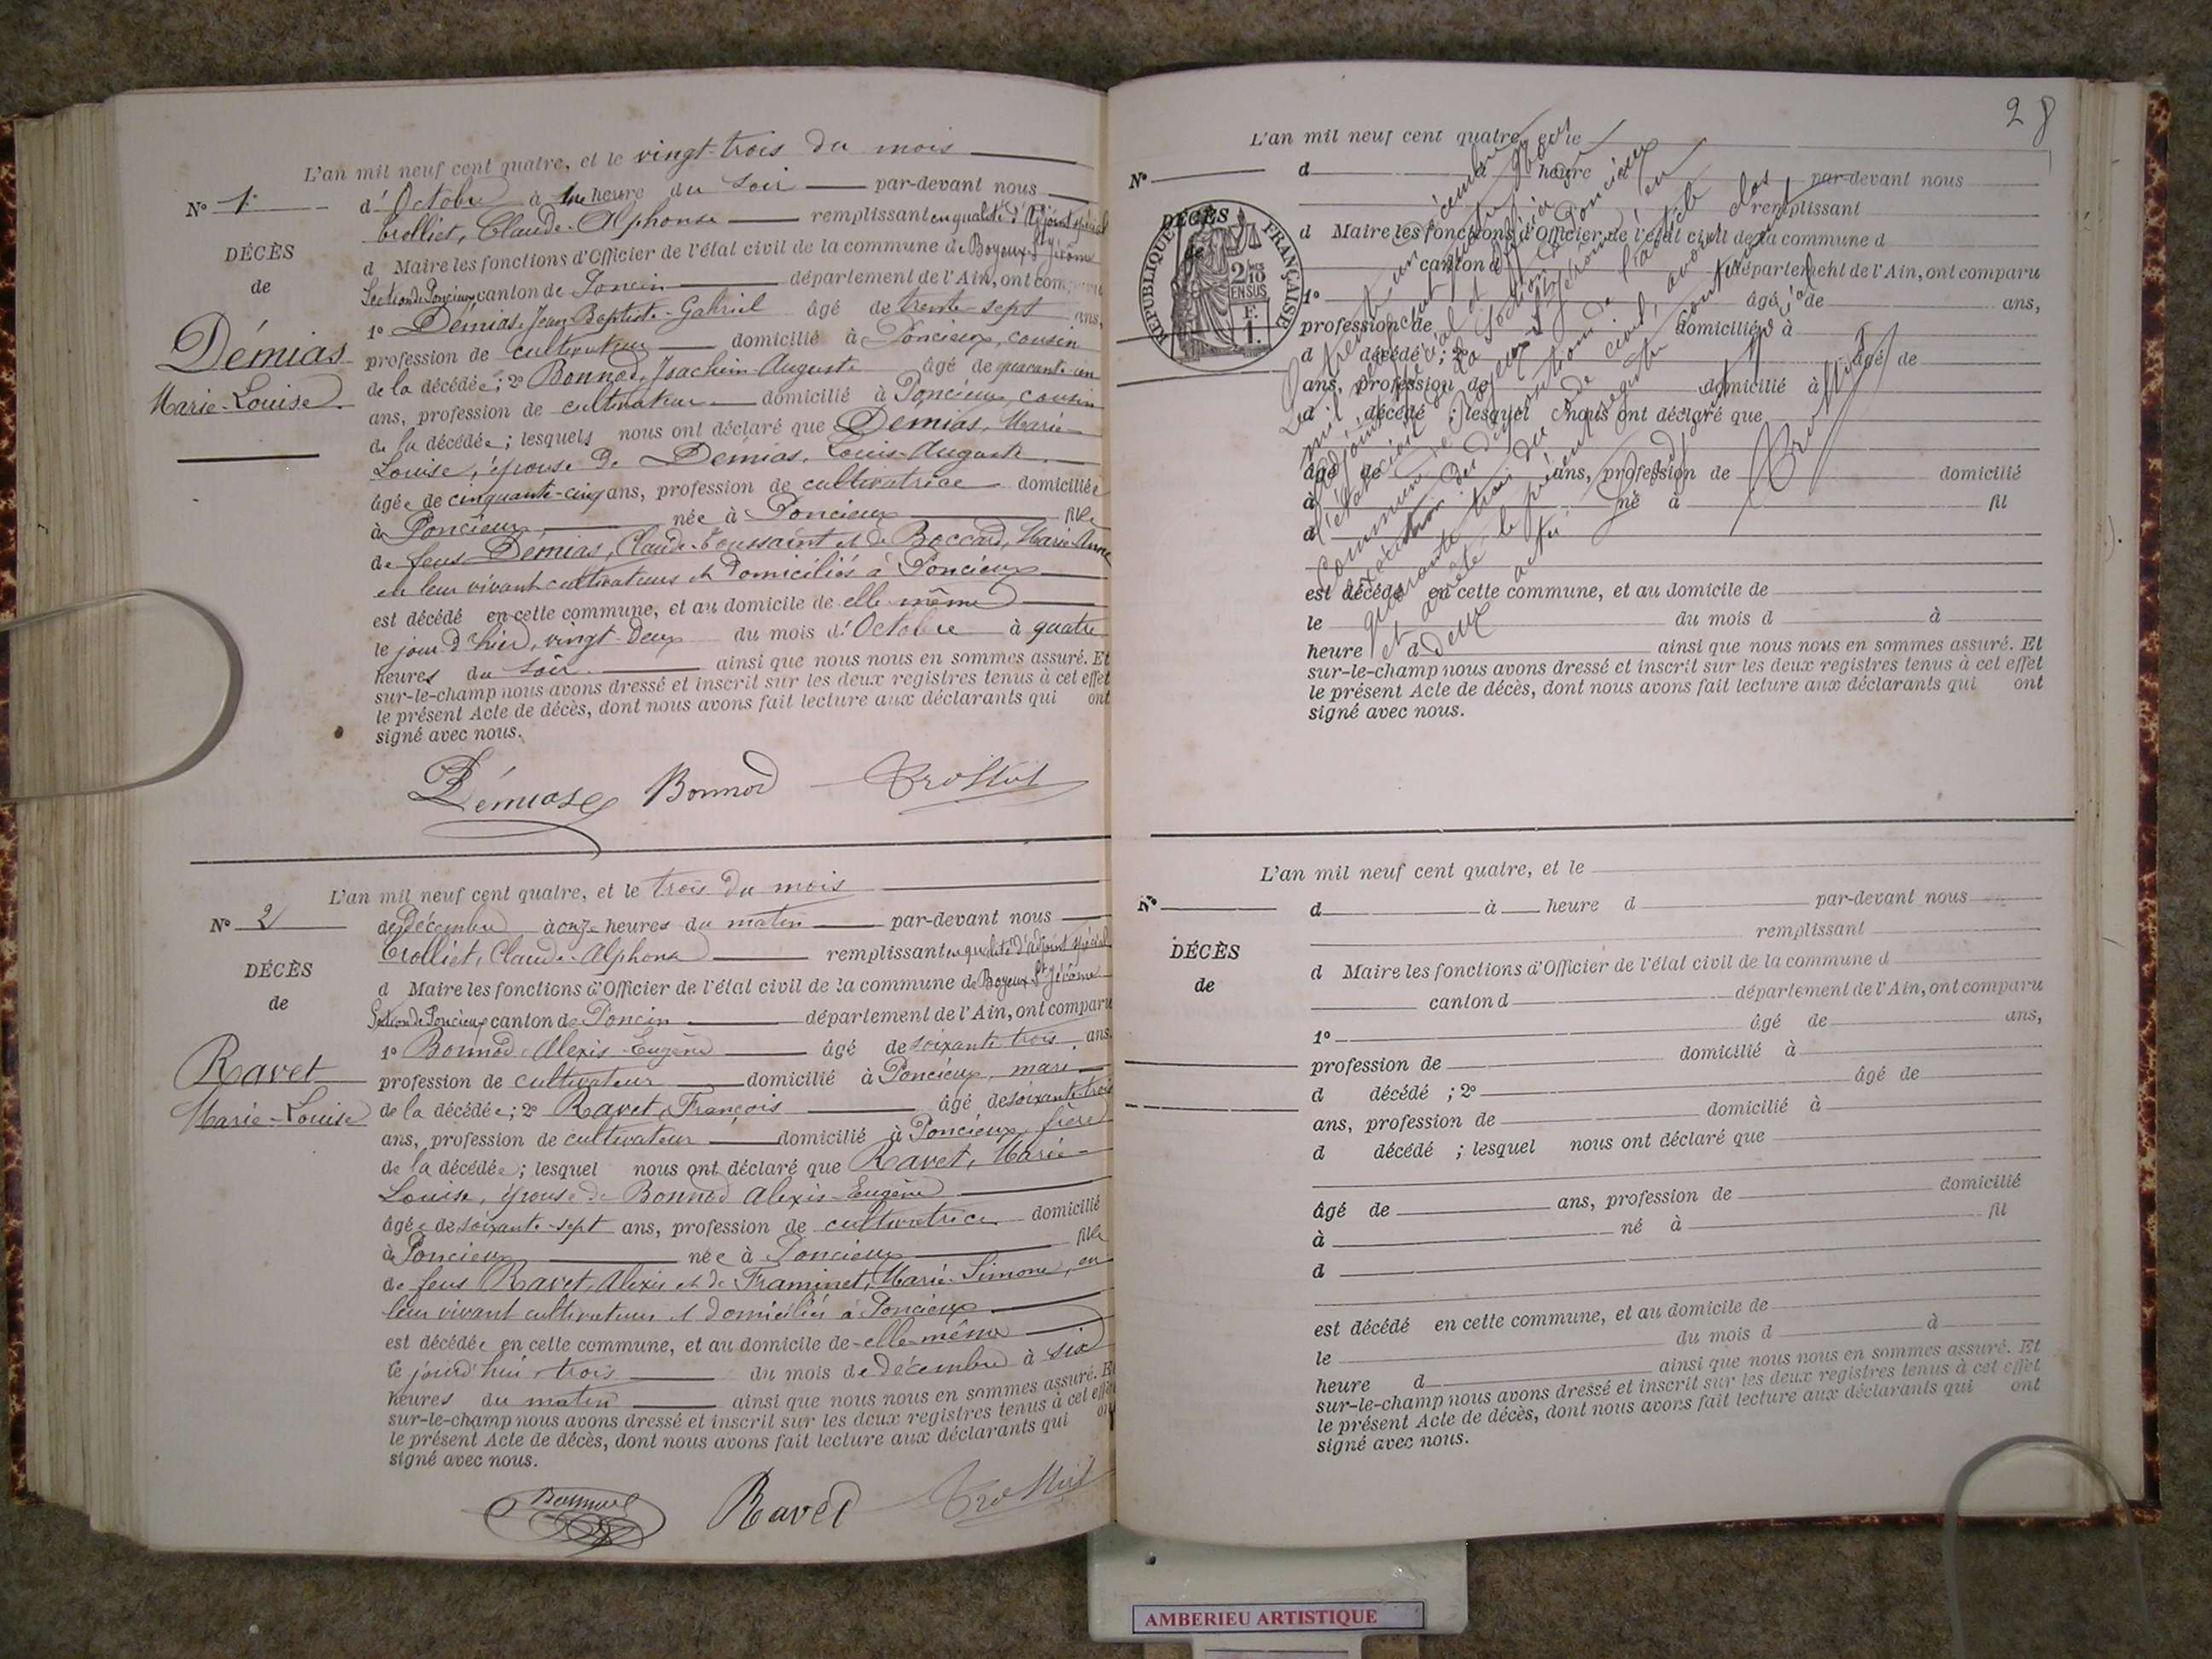 L'an mil neuf cent quatre, et le vingt-trois du mois
N° 1
d'Octobre à une heure du soir par-devant nous
Trolliet, Claude-Alphonse remplissant en qualité d'Adjoint spécial
DÉCÈS
d Maire les fonctions d'Officier de l'état civil de la commune de Boyeux-St Jérôme
de
Section de Poncieux canton de Poncin département de l'Ain, ont comparu
1° Démias, Jean-Baptiste-Gabriel âgé de trente-sept ans,
Démias
Marie-Louise
profession de cultivateur domicilié à Poncieux, cousin
de la décédée; 2° Bonnod, Joachim-Auguste âgé de quarante-un
ans, profession de cultivateur domicilié à Poncieux cousin
de la décédée; lesquels nous ont déclaré que Démias, Marie-
Louise, épouse de Démias, Louis-Auguste
âgée de cinquante-cinq ans, profession de cultivatrice domiciliée
à Poncieux née à Poncieux fille
de feus Démias, Claude-Toussaint et de Boccard, Marie-Anne
en leur vivant cultivateurs et domiciliés à Poncieux
est décédé en cette commune, et au domicile de elle même
le jour d'hier, vingt-deux du mois d'Octobre à quatre
heures du soir ainsi que nous nous en sommes assuré. Et
sur-le-champ nous avons dressé et inscrit sur les deux registres tenus à cet effet
le présent Acte de décès, dont nous avons fait lecture aux déclarants qui ont
signé avec nous.
Démias Bonnod Trolliet
L'an mil neuf cent quatre, et le trois du mois
N° 2
de Décembre à onze heures du matin par-devant nous
Trolliet, Claude-Alphonse remplissant en qualité d'adjoint spécial
DÉCÈS
d Maire les fonctions d'Officier de l'état civil de la commune de Boyeux-St Jérôme
de
Section de Poncieux canton de Poncin département de l'Ain, ont comparu
1° Bonnod Alexis-Eugène âgé de soixante-trois ans,
Ravet
Marie-Louise
profession de cultivateur domicilié à Poncieux, mari
de la décédée; 2° Ravet, François âgé de soixante-trois
ans, profession de cultivateur domicilié à Poncieux, frère
de la décédée; lesquel nous ont déclaré que Ravet, Marie-
Louise, épouse de Bonnod Alexis-Eugène
âgée de soixante-sept ans, profession de cultivatrice domicilié
à Poncieux née à Poncieux fille
de feus Ravet, Alexis et de Framinet, Marie-Simone, en
leur vivant cultivateurs et domiciliés à Poncieux
est décédée en cette commune, et au domicile de elle-même
le jourd'hui, trois du mois de décembre à six
heures du matin ainsi que nous nous en sommes assuré. Et
sur-le-champ nous avons dressé et inscrit sur les deux registres tenus à cet effet
le présent Acte de décès, dont nous avons fait lecture aux déclarants qui ont
signé avec nous.
Bonnod Ravet Trolliet
28
L'an mil neuf cent quatre, et le
N°
d à heure d par-devant nous
remplissant
DÉCÈS
de
d Maire les fonctions d'Officier de l'état civil de la commune d
canton d département de l'Ain, ont comparu
RÉPUBLIQUE FRANÇAISE
2/10 EN SUS
1 F.
1° âgé de ans,
profession de domicilié à
d décédé ; 2° âgé de
ans, profession de domicilié à
d décédé ; lesquel nous ont déclaré que
âgé de ans, profession de domicilié
à né à fil
d
est décédé en cette commune, et au domicile de
le du mois d à
heure d ainsi que nous nous en sommes assuré. Et
sur-le-champ nous avons dressé et inscrit sur les deux registres tenus à cet effet
le présent Acte de décès, dont nous avons fait lecture aux déclarants qui ont
signé avec nous.
Le trente un décembre
mil neuf cent quatre, Nous
adjoint spécial et officier de
l'état civil de la Section de Poncieux
Commune de Boyeux St Jérôme, en
exécution des dispositions de l'article
quarante trois du Code civil, avons clos
et arrêté le présent registre contenant
deux actes
L'adjoint spécial
Trolliet
L'an mil neuf cent quatre, et le
N°
d à heure d par-devant nous
remplissant
DÉCÈS
d Maire les fonctions d'Officier de l'état civil de la commune d
de
canton d département de l'Ain, ont comparu
1° âgé de ans,
profession de domicilié à
d décédé ; 2° âgé de
ans, profession de domicilié à
d décédé ; lesquel nous ont déclaré que
âgé de ans, profession de domicilié
à né à fil
d
est décédé en cette commune, et au domicile de
le du mois d à
heure d ainsi que nous nous en sommes assuré. Et
sur-le-champ nous avons dressé et inscrit sur les deux registres tenus à cet effet
le présent Acte de décès, dont nous avons fait lecture aux déclarants qui ont
signé avec nous.
AMBERIEU ARTISTIQUE